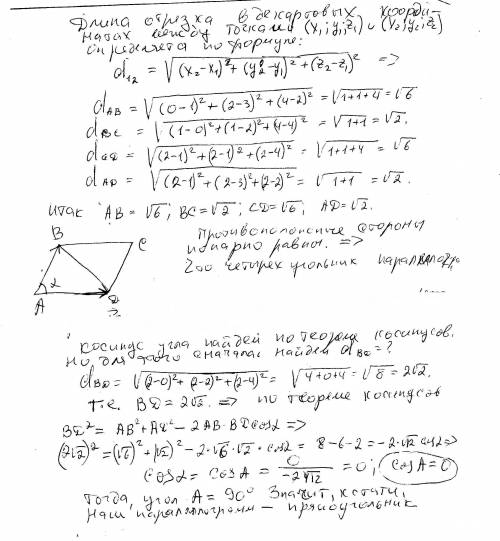 Длина отрезка в декартовых координатах между точками (x₁; y₁; z₁) и (x₂; y₂; z₂)
определяется по формуле:
d₁₂ = √((x₂-x₁)²+(y₂-y₁)²+(z₂-z₁)²) =>
d_AB = √((0-1)²+(2-3)²+(4-2)²) = √(1+1+4) = √6
d_BC = √((1-0)²+(1-2)²+(4-4)²) = √(1+1) = √2.
d_CD = √((2-1)²+(2-1)²+(2-4)²) = √(1+1+4) = √6
d_AD = √((2-1)²+(2-3)²+(2-2)²) = √(1+1) = √2.
итак AB = √6; BC = √2; CD = √6; AD = √2.
Противоположные стороны
попарно равны. =>
четырехугольник
B
C
A
α
D
Косинус угла найдем по теореме косинусов.
Но для этого сначала найдем d_BD = ?
d_BD = √((2-0)²+(2-2)²+(2-4)²) = √(4+0+4) = √8 = 2√2.
т.е. BD = 2√2. => по теореме косинусов
BD² = AB²+AD² - 2AB·BD cosα =>
(2√2)² = (√6)²+(√2)² - 2·√6·√2·cosα = 8-6-2 = -2·√12 cosα =>
cosα = cosA = 0/(-2√12) = 0; cosA = 0
Тогда, угол A = 90° Значит, кстати,
наш параллелограмм - прямоугольник